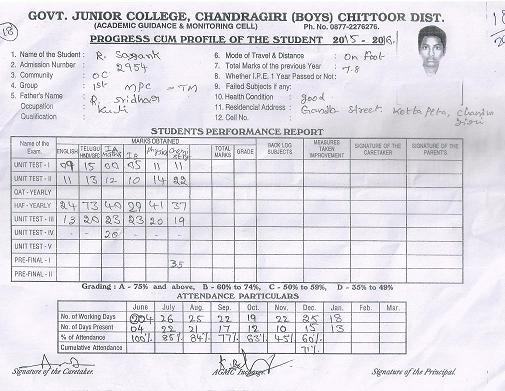 18
GOVT. JUNIOR COLLEGE, CHANDRAGIRI (BOYS) CHITTOOR DIST.
(ACADEMIC GUIDANCE & MONITORING CELL) Ph. No. 0877-2276276.
PROGRESS CUM PROFILE OF THE STUDENT 2015 - 2016.
1. Name of the Student : R. Sasank
2. Admission Number : 2954
3. Community : OC
4. Group : 1st MPC - TM
5. Father's Name : R. Sridhar
Occupation : Kuli
Qualification :
6. Mode of Travel & Distance : On Foot
7. Total Marks of the previous Year : 7.8
8. Whether I.P.E. 1 Year Passed or Not :
9. Failed Subjects if any:
10. Health Condition : good
11. Residencial Address : Street. Kotta Peta,
12. Cell No. :
STUDENTS PERFORMANCE REPORT
Name of the Exam. MARKS OBTAINED TOTAL MARKS GRADE BACK LOG SUBJECTS MEASURES TAKEN IMPROVEMENT SIGNATURE OF THE CARETAKER SIGNATURE OF THE PARENTS
ENGLISH TELUGU HINDI/SRT IA Maths IB Physics Chemistry
UNIT TEST - I 09 15 00 05 11 11
UNIT TEST - II 11 13 12 10 14 22
QAT - YEARLY
HAF - YEARLY 24 73 40 29 41 37
UNIT TEST - III 13 20 23 23 20 19
UNIT TEST - IV - - 20 - - -
UNIT TEST - V
PRE-FINAL - I 35
PRE-FINAL - II
Grading : A - 75% and above, B - 60% to 74%, C - 50% to 59%, D - 35% to 49%
ATTENDANCE PARTICULARS
June July Aug. Sep. Oct. Nov. Dec. Jan. Feb. Mar.
No. of Working Days 04 26 25 22 19 22 25 18
No. of Days Present 04 22 21 17 12 10 15 13
% of Attendance 100% 85% 84% 77% 63% 45% 60%
Cumulative Attendance 71%
Signature of the Caretaker. AGMC Incharge. Signature of the Principal.